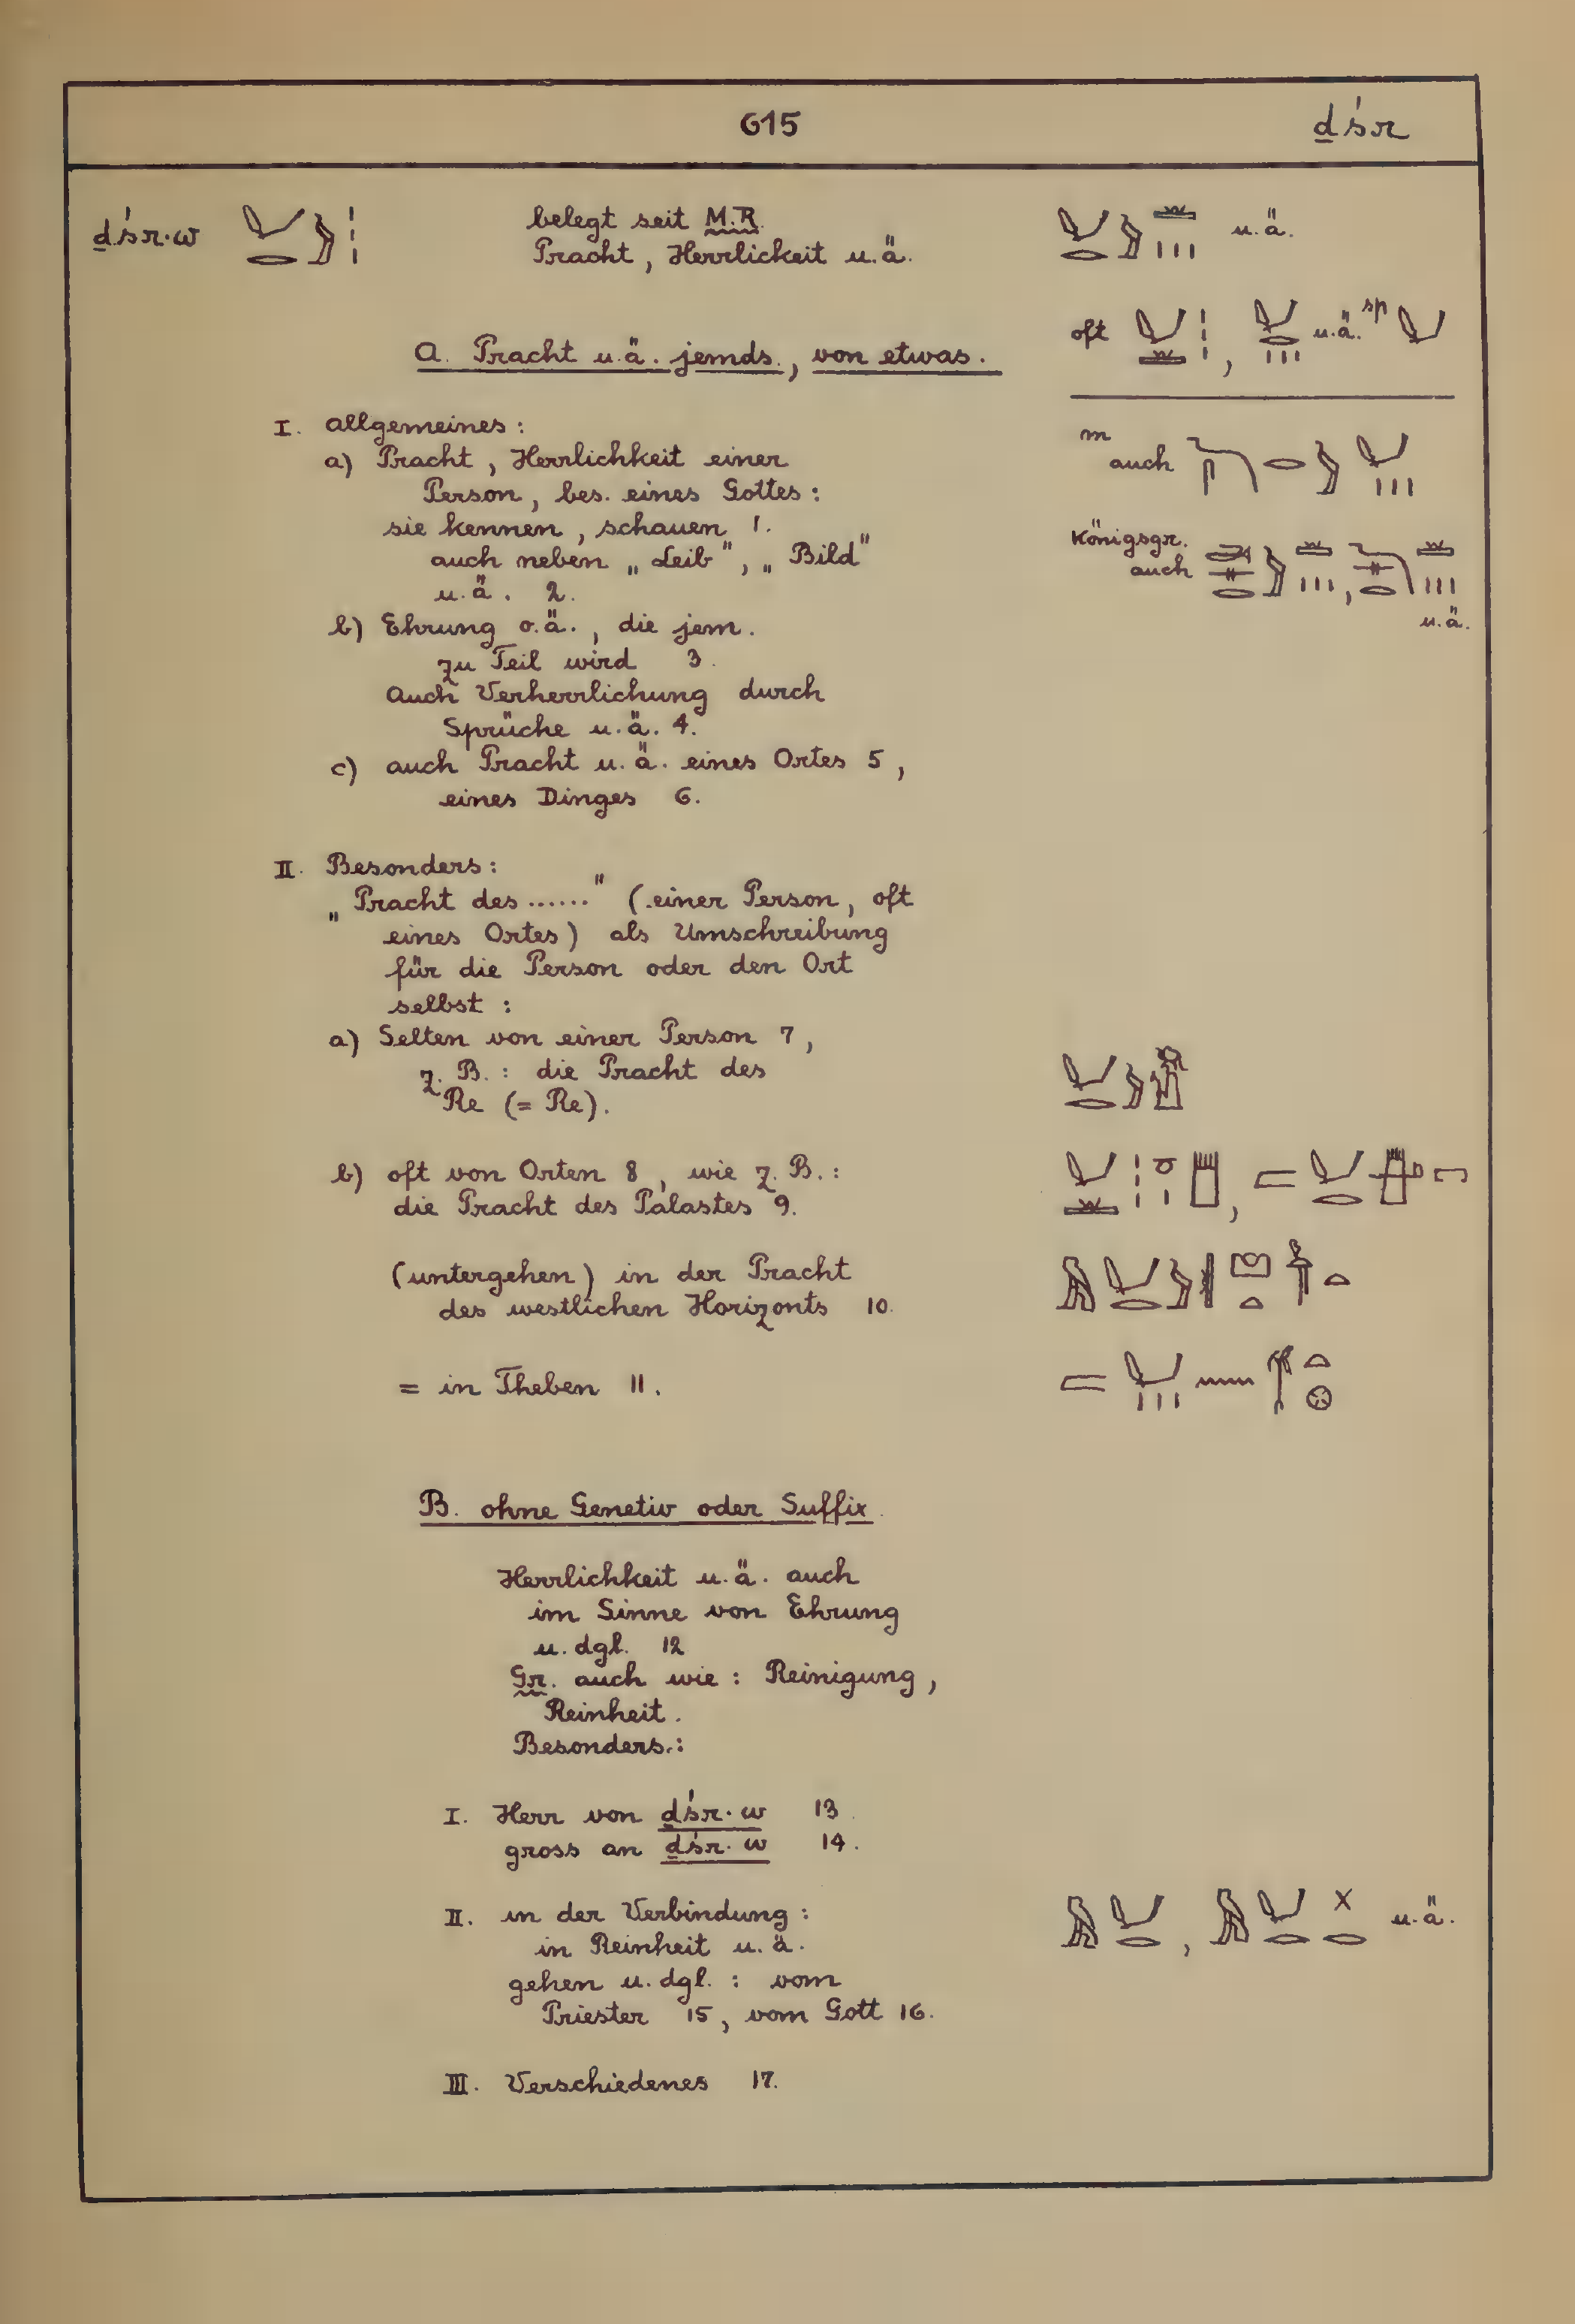 615 ḏśr
ḏśr.w belegt seit M.R.
Pracht, Herrlickeit u.ä. u.ä.
oft , u.ä. sp
A. Pracht u.ä. jemds., von etwas.
I. Allgemeines:
a) Pracht, Herrlichkeit einer
Person, bes. eines Gottes:
sie kennen, schauen 1.
auch neben „Leib", „Bild"
u.ä. 2.
b) Ehrung o.ä., die jem.
zu Teil wird 3.
Auch Verherrlichung durch
Sprüche u.ä. 4.
c) auch Pracht u.ä. eines Ortes 5,
eines Dinges 6.
m
auch
Königsgr.
auch ,
u.ä.
II. Besonders:
„Pracht des ......" (einer Person, oft
eines Ortes) als Umschreibung
für die Person oder den Ort
selbst:
a) Selten von einer Person 7,
z. B.: die Pracht des
Re (= Re).
b) oft von Orten 8, wie z. B.:
die Pracht des Palastes 9.
(untergehen) in der Pracht
des westlichen Horizonts 10.
= in Theben 11.
B. ohne Genetiv oder Suffix.
Herrlichkeit u.ä. auch
im Sinne von Ehrung
u. dgl. 12
Gr. auch wie: Reinigung,
Reinheit.
Besonders.:
I. Herr von ḏśr.w 13.
gross an ḏśr.w 14.
II. in der Verbindung:
in Reinheit u.ä. , u.ä.
gehen u. dgl.: vom
Priester 15, vom Gott 16.
III. Verschiedenes 17.